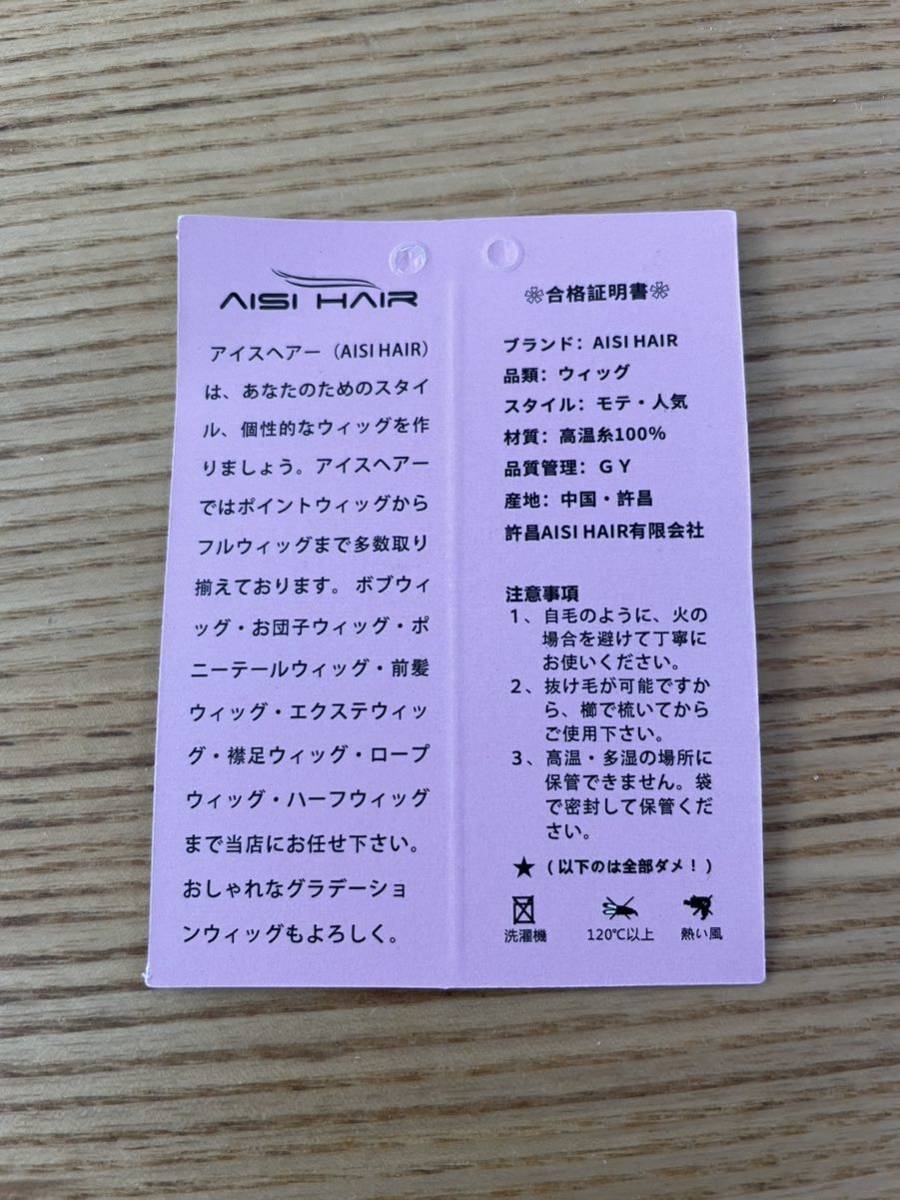 AISI HAIR
アイスヘアー（AISI HAIR）
は、あなたのためのスタイ
ル、個性的なウィッグを作
りましょう。アイスヘアー
ではポイントウィッグから
フルウィッグまで多数取り
揃えております。ボブウィ
ッグ・お団子ウィッグ・ポ
ニーテールウィッグ・前髪
ウィッグ・エクステウィッ
グ・襟足ウィッグ・ロープ
ウィッグ・ハーフウィッグ
まで当店にお任せ下さい。
おしゃれなグラデーショ
ンウィッグもよろしく。
❀合格証明書❀
ブランド：AISI HAIR
品類：ウィッグ
スタイル：モテ・人気
材質：高温糸100%
品質管理：ＧＹ
産地：中国・許昌
許昌AISI HAIR有限会社
注意事項
1、自毛のように、火の
場合を避けて丁寧に
お使いください。
2、抜け毛が可能ですか
ら、櫛で梳いてから
ご使用下さい。
3、高温・多湿の場所に
保管できません。袋
で密封して保管くだ
さい。
★（以下のは全部ダメ！）
洗濯機 120℃以上 熱い風